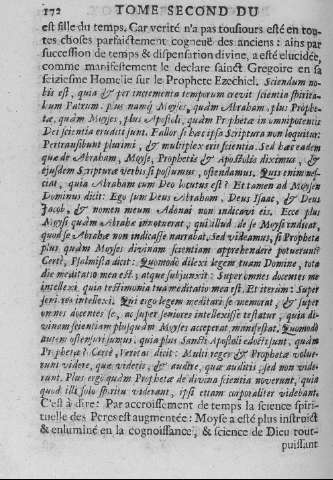 172 TOME SECOND DU
est fille du temps. Car verité n'a pas tousiours esté en tou-
tes choses parfaictement cogneuë des anciens: ains par
succession de temps & dispensation divine, a esté elucidée,
comme manifestement le declare sainct Gregoire en sa
seiziesme Homelie sur le Prophete Ezechiel. Sciendum no-
bis est, quia & per incrementa temporum crevit scientia spiritua-
lium Patrum. plus namq́ Moyses, quàm Abraham, plus Prophe-
tæ, quàm Moyses, plus Apostoli, quàm Prophetæ in omnipotentis
Dei scientia eruditi sunt. Fallor si hæc ipsa Scriptura non loquitur:
Pertransibunt plurimi, & multiplex erit scientia. Sed hæc eadem
quæ de Abraham, Moyse, Prophetis & Apostolis diximus, ex
ejusdem Scripturæ verbis si possumus, ostendamus. Quis enim nes-
ciat, quia Abraham cum Deo locutus est? Et tamen ad Moysen
Dominus dicit: Ego sum Deus Abraham, Deus Isaac, & Deus
Jacob, & nomen meum Adonai non indicavi eis. Ecce plus
Moysi quàm Abrahæ innotuerat, qui illud de se Moysi indicat,
quod se Abrahæ non indicasse narrabat. Sed videamus, si Prophetæ
plus quàm Moyses divinam scientiam apprehendere potuerunt?
Certè, Psalmista dicit: Quomodo dilexi legem tuam Domine, tota
die meditatio mea est; atque subjunxit: Super omnes docentes me
intellexi, quia testimonia tua meditatio mea est. Et iterùm: Super
seniores intellexi. Qui ergo legem meditari se memorat, & super
omnes docentes se, ac super seniores intellexisse testatur, quia di-
vinam scientiam plusquàm Moyses acceperat, manifestat. Quomodo
autem ostensuri sumus, quia plus Sancti Apostoli edocti sunt, quàm
Prophetæ? Certè, Veritas dicit: Multi reges & Prophetæ volue-
runt videre, quæ videtis, & audire, quæ auditis; sed non vide-
runt. Plus ergo quàm Prophetæ de divina scientia noverunt, quia
quod illi solo spiritu viderant, ipsi etiam corporaliter videbant.
C'est à dire: Par accroissement de temps la science spiri-
tuelle des Peres est augmentée: Moyse a esté plus instruict
& enluminé en la cognoissance, & science de Dieu tout-
puissant